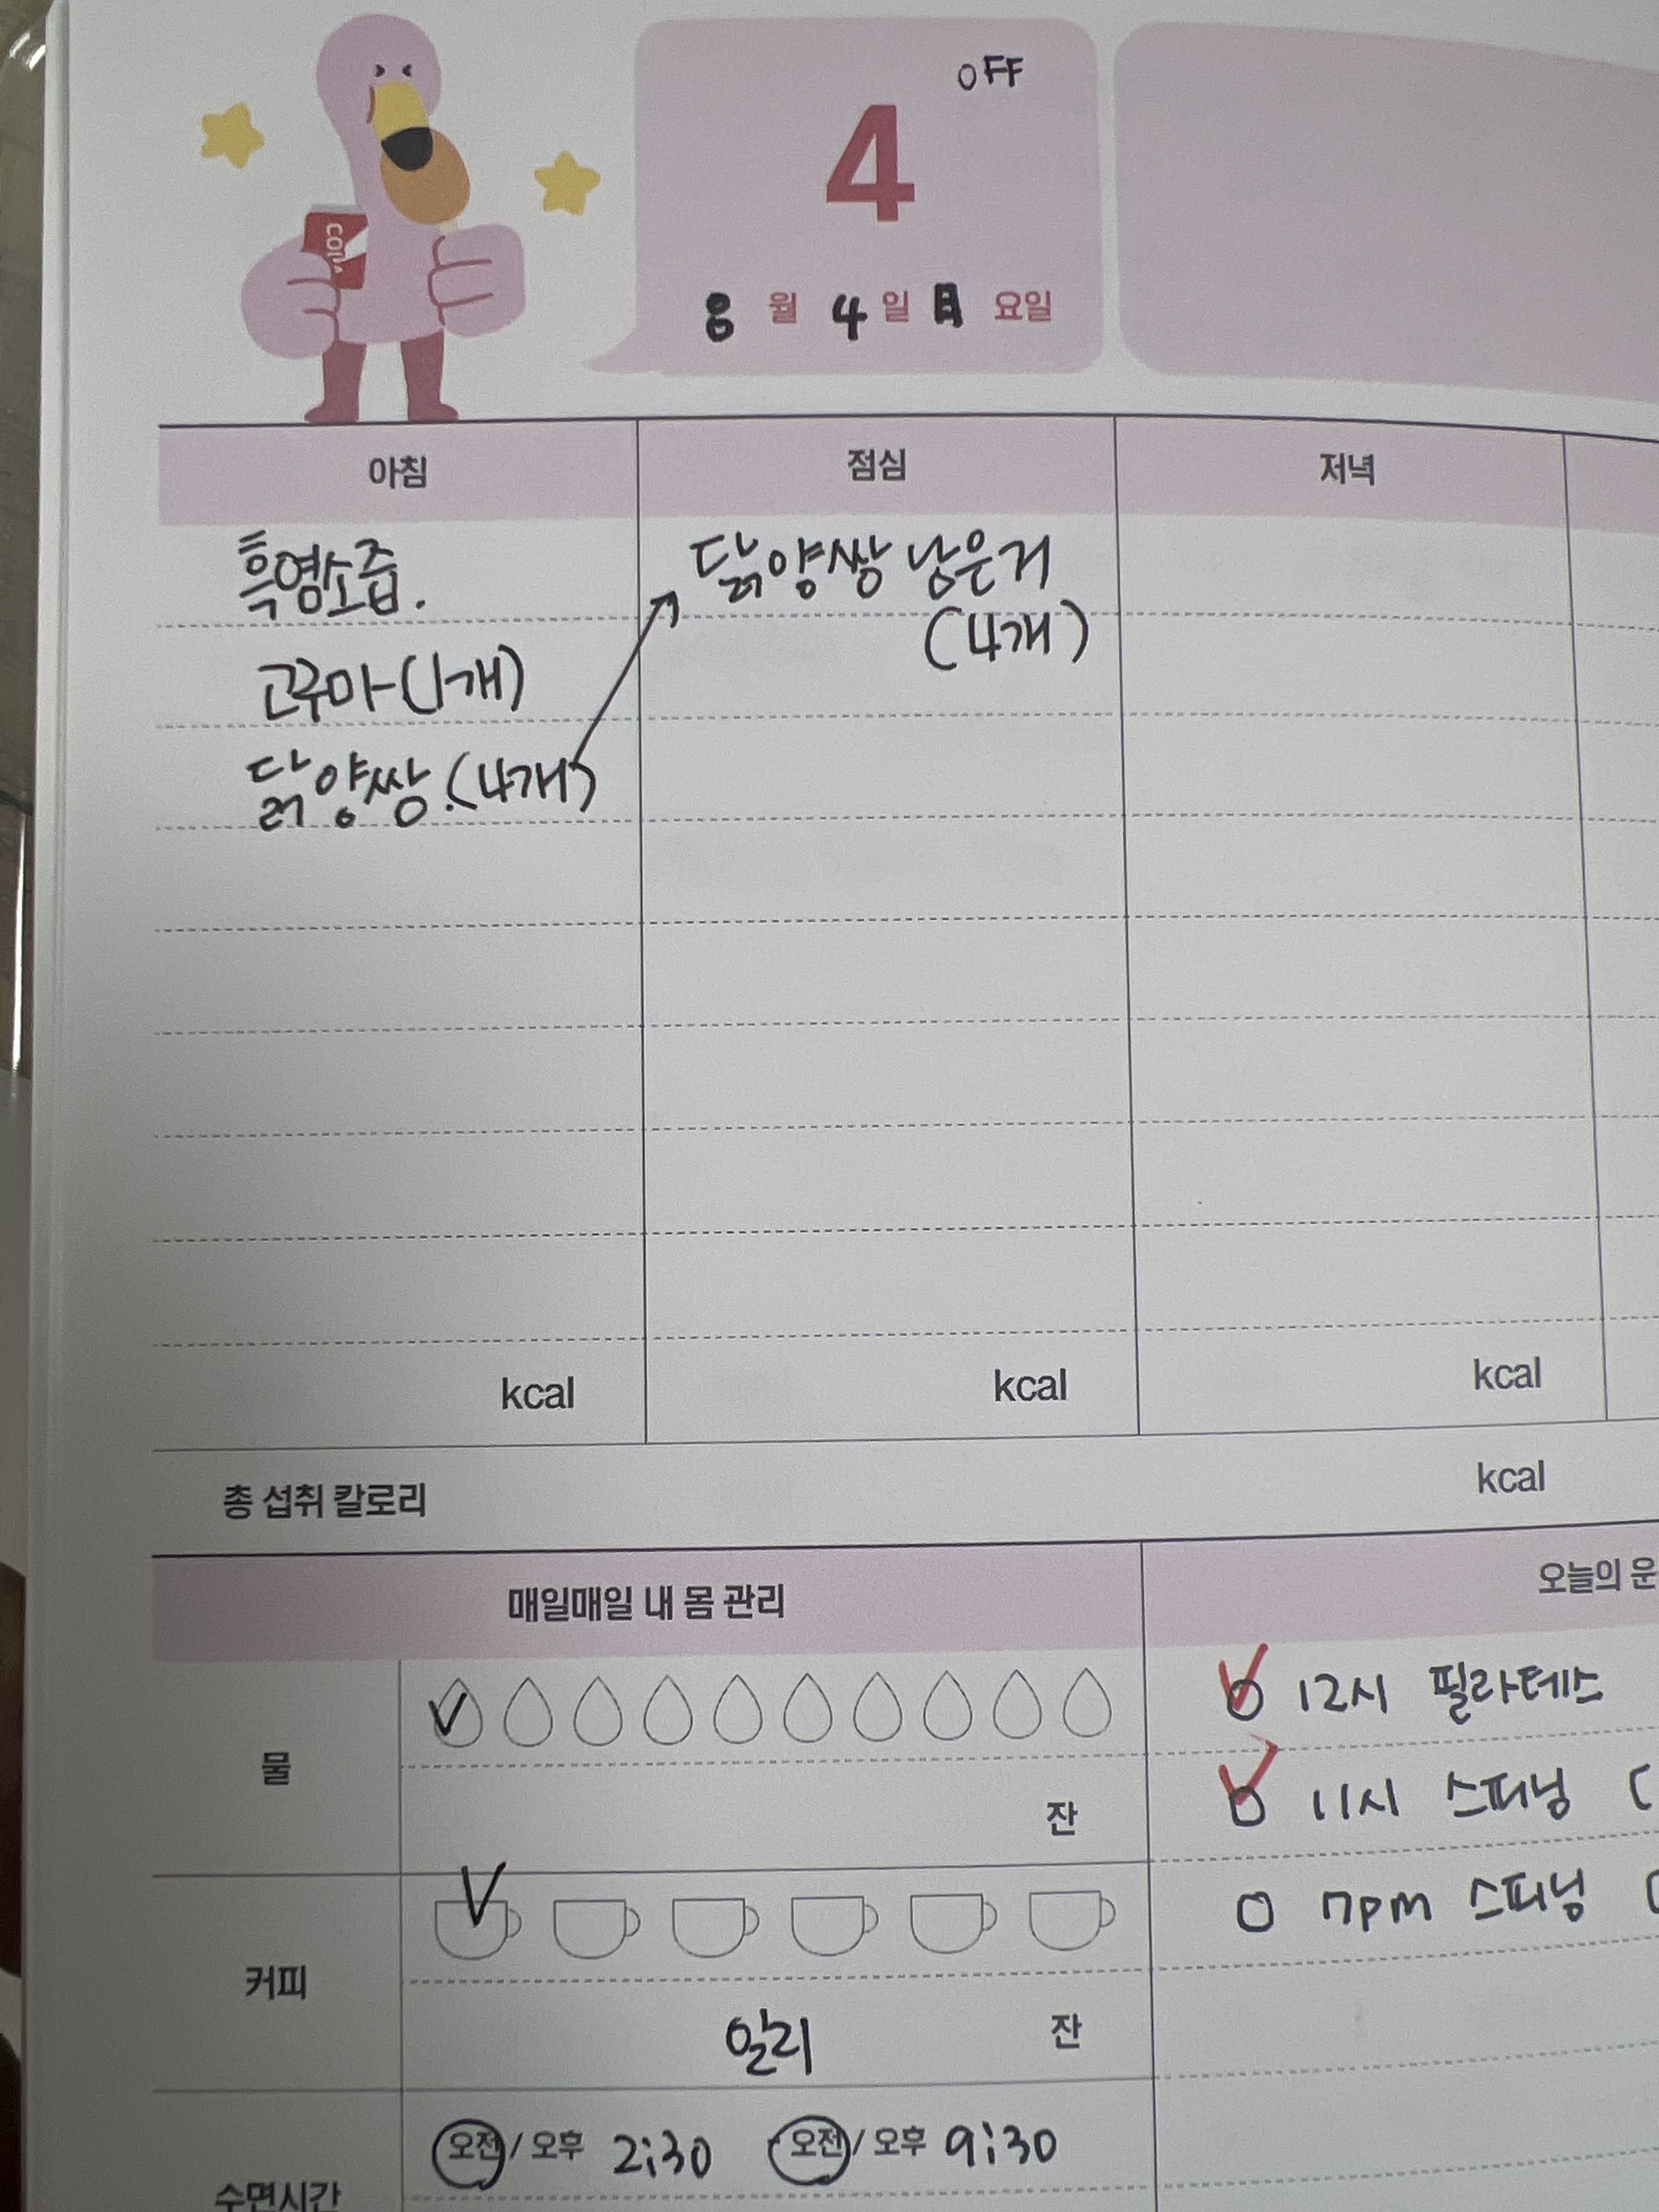 OFF
4
8 월 4 일 日 요일
아침 점심 저녁
흑염소즙. 닭양쌍 남은거
(4개)
고구마-(1개)
닭양쌍.(4개)
kcal kcal kcal
총 섭취 칼로리 kcal
매일매일 내 몸 관리 오늘의 운
물 12시 필라테스
잔 11시 스피닝 (
커피 7pm 스피닝 (
알리 잔
수면시간 오전 / 오후 2:30 오전 / 오후 9:30